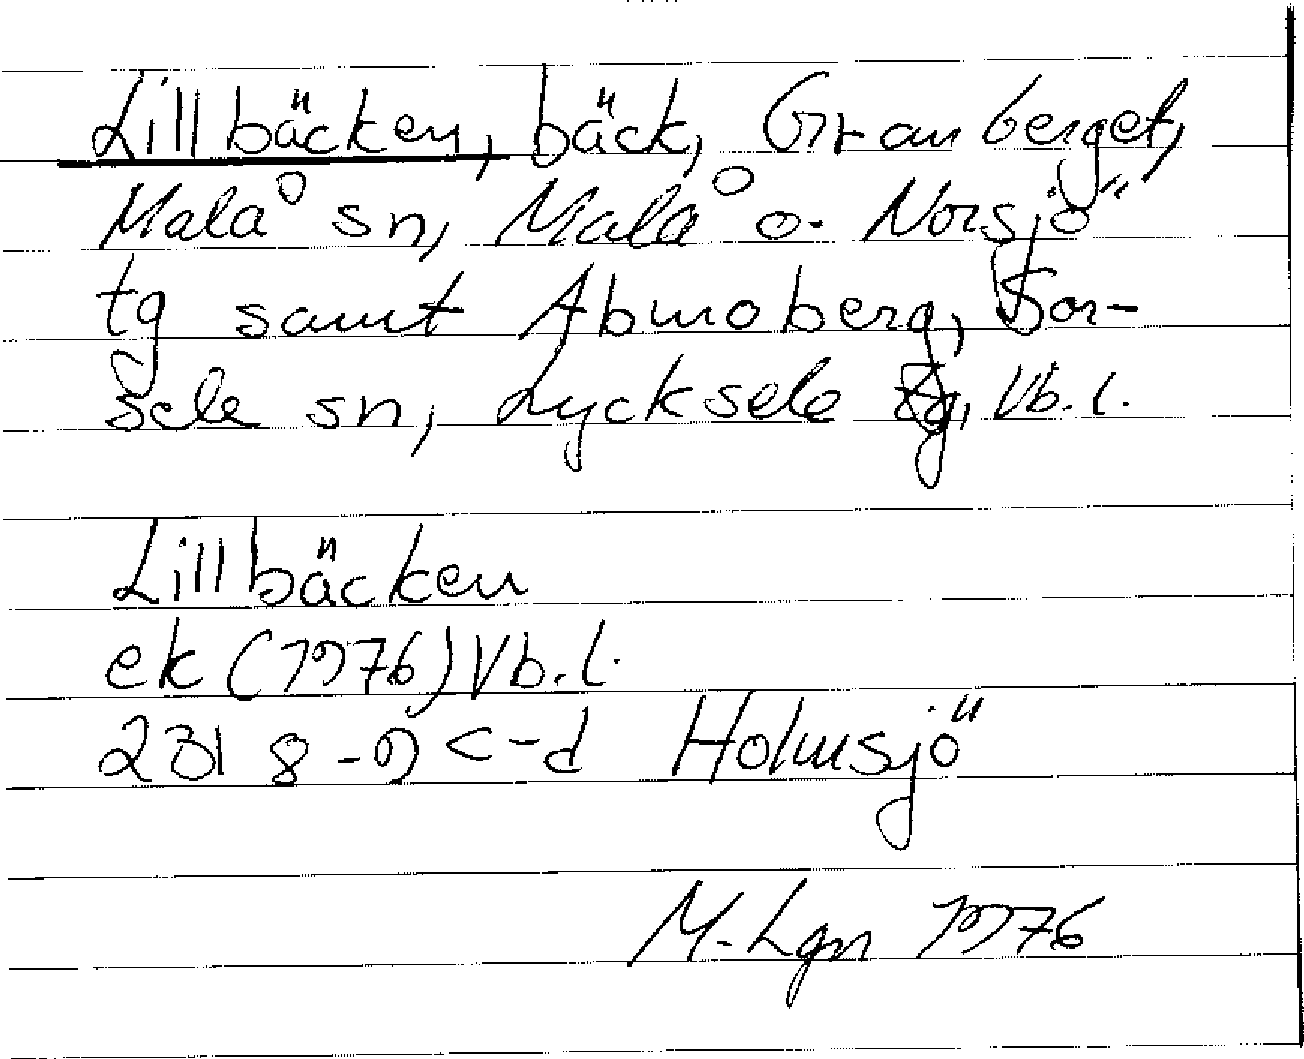 Lillbäcken, bäck, Granberget,
Malå sn, Malå o. Norsjö
tg samt Abmoberg, Sor-
sele sn, Lycksele tg, Vb. l.
Lillbäcken
ek (1976) Vb. l.
231 8-9 c-d Holmsjö
M. Lgn 1976